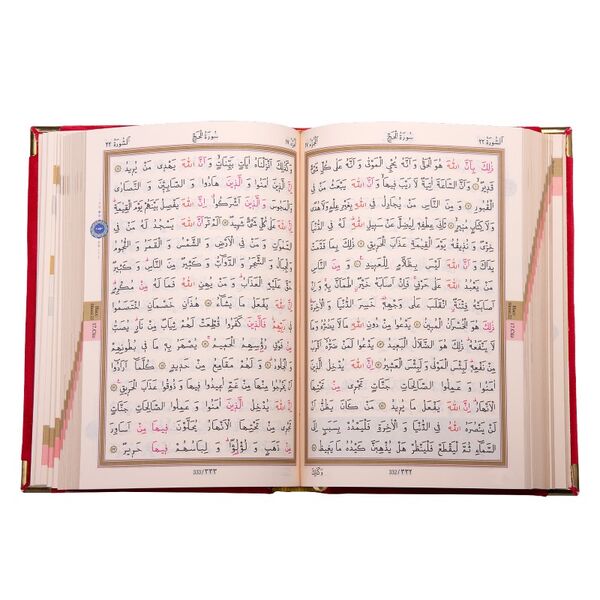 اَلسُّورَةُ ٢٢
سُورَةُ الْحَجِّ
اَلْجُزْءُ ١٧
ذٰلِكَ بِاَنَّ اللّٰهَ هُوَ الْحَقُّ وَاَنَّهُ يُحْيِ الْمَوْتٰى وَاَنَّهُ عَلٰى كُلِّ شَيْءٍ
قَدِيرٌ وَاَنَّ السَّاعَةَ اٰتِيَةٌ لَا رَيْبَ فِيهَا وَاَنَّ اللّٰهَ يَبْعَثُ مَنْ فِي
الْقُبُورِ وَمِنَ النَّاسِ مَنْ يُجَادِلُ فِي اللّٰهِ بِغَيْرِ عِلْمٍ وَلَا هُدًى
وَلَا كِتَابٍ مُنِيرٍ ثَانِيَ عِطْفِهِ لِيُضِلَّ عَنْ سَبِيلِ اللّٰهِ لَهُ فِي الدُّنْيَا
خِزْيٌ وَنُذِيقُهُ يَوْمَ الْقِيٰمَةِ عَذَابَ الْحَرِيقِ ذٰلِكَ بِمَا قَدَّمَتْ
يَدَاكَ وَاَنَّ اللّٰهَ لَيْسَ بِظَلَّامٍ لِلْعَبِيدِ وَمِنَ النَّاسِ
مَنْ يَعْبُدُ اللّٰهَ عَلٰى حَرْفٍ فَاِنْ اَصَابَهُ خَيْرٌ اطْمَاَنَّ بِهِ وَاِنْ
اَصَابَتْهُ فِتْنَةٌ انْقَلَبَ عَلٰى وَجْهِهِ خَسِرَ الدُّنْيَا وَالْاٰخِرَةَ
ذٰلِكَ هُوَ الْخُسْرَانُ الْمُبِينُ يَدْعُوا مِنْ دُونِ اللّٰهِ مَا لَا يَضُرُّهُ وَمَا
لَا يَنْفَعُهُ ذٰلِكَ هُوَ الضَّلَالُ الْبَعِيدُ يَدْعُوا لَمَنْ ضَرُّهُ اَقْرَبُ
مِنْ نَفْعِهِ لَبِئْسَ الْمَوْلٰى وَلَبِئْسَ الْعَشِيرُ اِنَّ اللّٰهَ يُدْخِلُ الَّذِينَ
اٰمَنُوا وَ عَمِلُوا الصَّالِحَاتِ جَنَّاتٍ تَجْرِي مِنْ تَحْتِهَا
الْاَنْهَارُ اِنَّ اللّٰهَ يَفْعَلُ مَا يُرِيدُ مَنْ كَانَ يَظُنُّ اَنْ
لَنْ يَنْصُرَهُ اللّٰهُ فِي الدُّنْيَا وَالْاٰخِرَةِ فَلْيَمْدُدْ بِسَبَبٍ اِلَى
السَّمَاءِ ثُمَّ لْيَقْطَعْ فَلْيَنْظُرْ هَلْ يُذْهِبَنَّ كَيْدُهُ مَا يَغِيظُ
332/٣٣٢
وَكَذٰلِكَ
اَلسُّورَةُ ٢٢
سُورَةُ الْحَجِّ
وَكَذٰلِكَ اَنْزَلْنَاهُ اٰيَاتٍ بَيِّنَاتٍ وَ اَنَّ اللّٰهَ يَهْدِي مَنْ يُرِيدُ
اِنَّ الَّذِينَ اٰمَنُوا وَ الَّذِينَ هَادُوا وَ الصَّابِـِٔينَ وَ النَّصَارٰى
وَ الْمَجُوسَ وَ الَّذِينَ اَشْرَكُوا اِنَّ اللّٰهَ يَفْصِلُ بَيْنَهُمْ يَوْمَ الْقِيٰمَةِ
اِنَّ اللّٰهَ عَلٰى كُلِّ شَيْءٍ شَهِيدٌ اَلَمْ تَرَ اَنَّ اللّٰهَ يَسْجُدُ لَهُ مَنْ فِي
السَّمٰوَاتِ وَ مَنْ فِي الْاَرْضِ وَ الشَّمْسُ وَ الْقَمَرُ وَ النُّجُومُ
وَ الْجِبَالُ وَ الشَّجَرُ وَ الدَّوَابُّ وَ كَثِيرٌ مِنَ النَّاسِ وَ كَثِيرٌ
حَقَّ عَلَيْهِ الْعَذَابُ وَ مَنْ يُهِنِ اللّٰهُ فَمَا لَهُ مِنْ مُكْرِمٍ
اِنَّ اللّٰهَ يَفْعَلُ مَا يَشَاءُ هٰذَانِ خَصْمَانِ اخْتَصَمُوا
فِي رَبِّهِمْ فَالَّذِينَ كَفَرُوا قُطِّعَتْ لَهُمْ ثِيَابٌ مِنْ نَارٍ يُصَبُّ
مِنْ فَوْقِ رُؤُسِهِمُ الْحَمِيمُ يُصْهَرُ بِهِ مَا فِي بُطُونِهِمْ
وَ الْجُلُودُ وَ لَهُمْ مَقَامِعُ مِنْ حَدِيدٍ كُلَّمَا اَرَادُوا
اَنْ يَخْرُجُوا مِنْهَا مِنْ غَمٍّ اُعِيدُوا فِيهَا وَ ذُوقُوا عَذَابَ الْحَرِيقِ
اِنَّ اللّٰهَ يُدْخِلُ الَّذِينَ اٰمَنُوا وَ عَمِلُوا الصَّالِحَاتِ جَنَّاتٍ
تَجْرِي مِنْ تَحْتِهَا الْاَنْهَارُ يُحَلَّوْنَ فِيهَا مِنْ اَسَاوِرَ
مِنْ ذَهَبٍ وَ لُؤْلُؤًا وَ لِبَاسُهُمْ فِيهَا حَرِيرٌ
333/٣٣٣